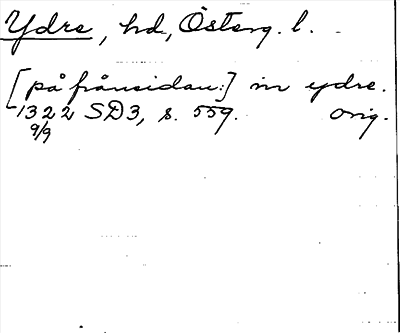 Ydre, hd, Österg. l.
[på frånsidan:] in ydre.
1322 SD3, s. 559. orig.
9/9